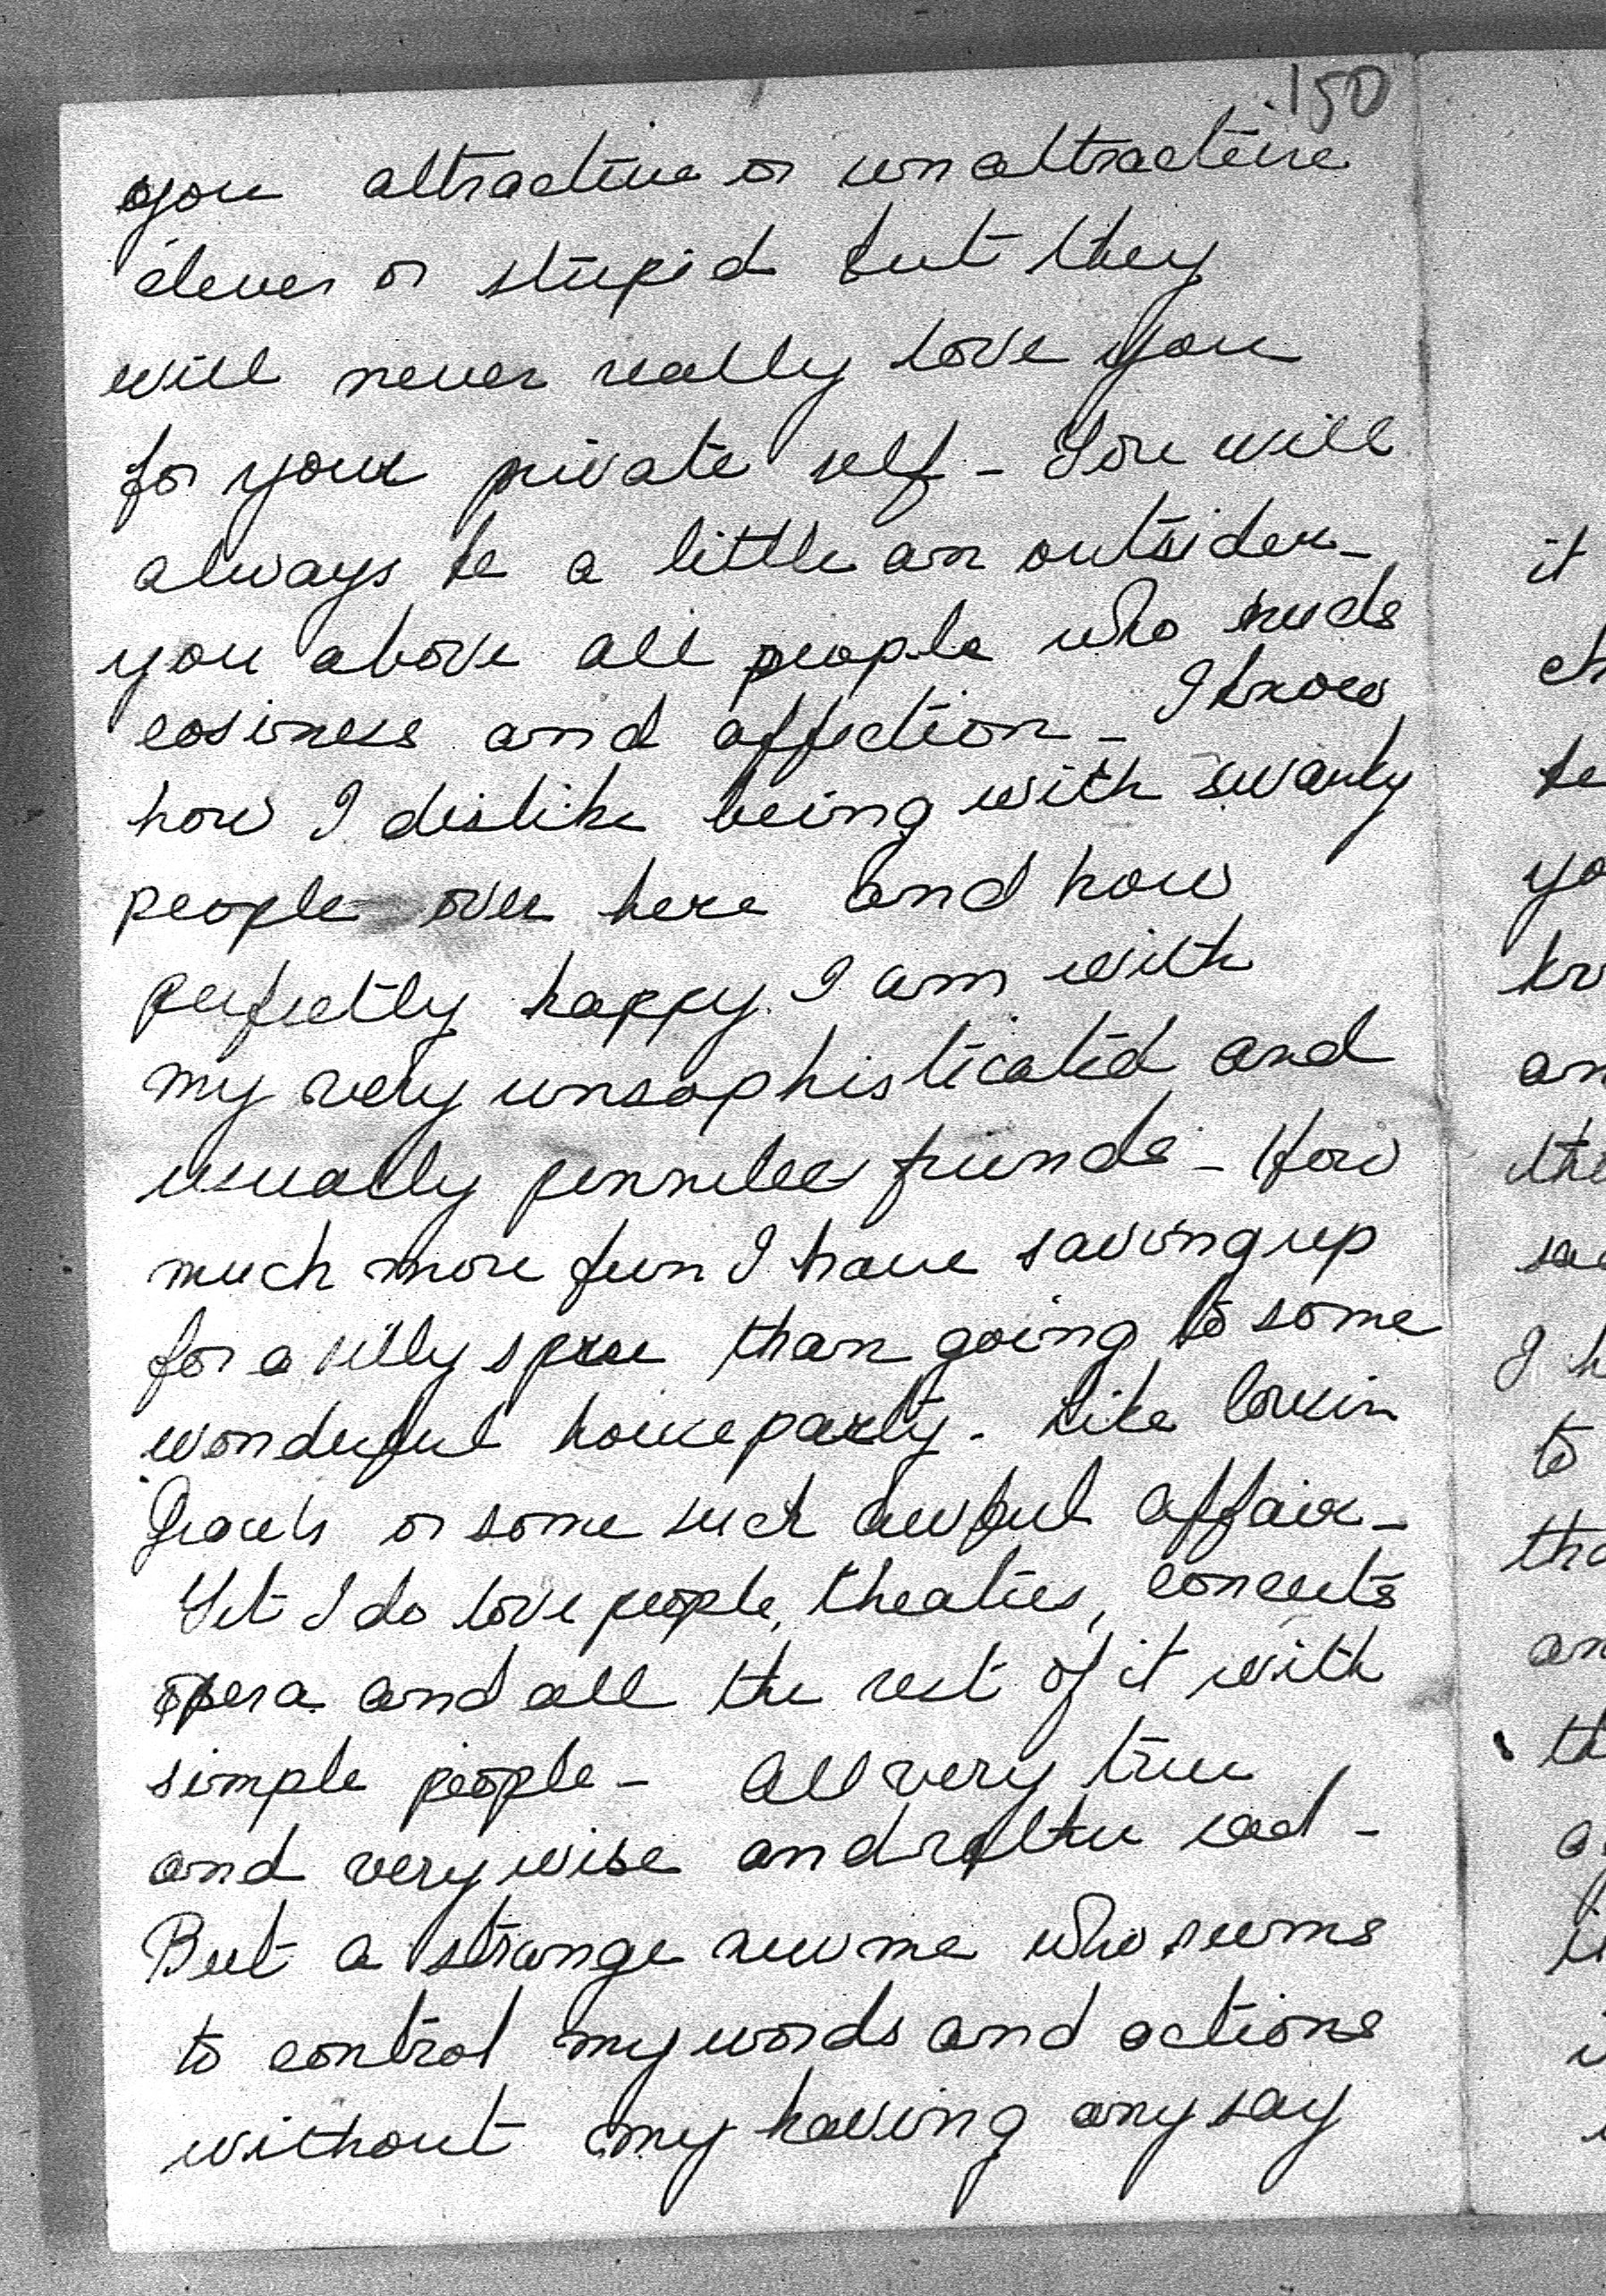 150
you attractive or unattractive
clever or stupid but they
will never really love you
for your private self - You will
always be a little an outsider -
you above all people who needs
cosiness and affection - I know
how I dislike being with swanky
people over here and how
perfectly happy I am with
my very unsophisticated and
usually penniless friends - How
much more fun I have saving up
for a silly spree than going to some
wonderful houseparty - like cousin
or some such awful affair -
Yet I do love people, theatres, concerts
opera and all the rest of it with
simple people - All very true
and very wise and rather sad -
But a strange new me who seems
to control my words and actions
without my having any say
it
ch
be
yo
kn
an
the
sa
I h
to
tha
an
th